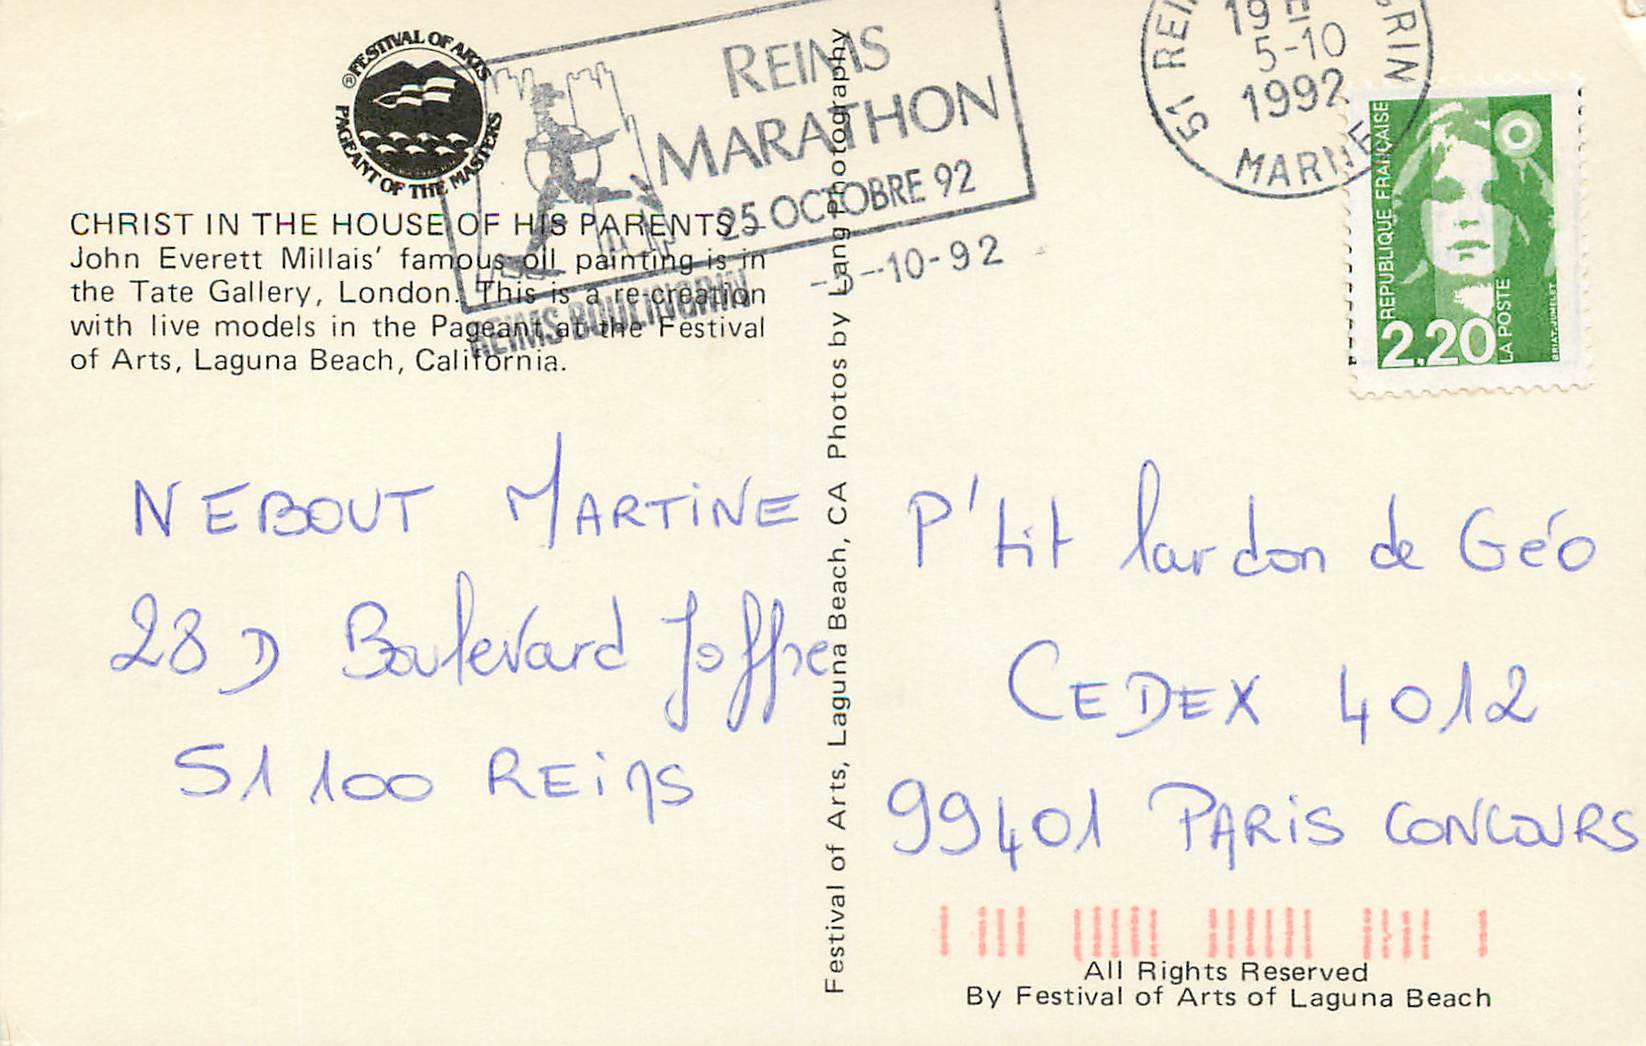 ® FESTIVAL OF ARTS
PAGEANT OF THE MASTERS
REIMS
MARATHON
25 OCTOBRE 92
REIMS BOULINGRIN
-10-92
19 H
5-10
1992
51 REI GRIN
MARNE
REPUBLIQUE FRANÇAISE
2,20
LA POSTE
BRIAT-JUMELET
CHRIST IN THE HOUSE OF HIS PARENTS –
John Everett Millais' famous oil painting is in
the Tate Gallery, London. This is a re-creation
with live models in the Pageant at the Festival
of Arts, Laguna Beach, California.
Festival of Arts, Laguna Beach, CA Photos by Lang Photography
NEBOUT MARTINE
28 D Boulevard Joffre
51 100 REIMS
P'tit lardon de Géo
CEDEX 4012
99401 PARIS CONCOURS
All Rights Reserved
By Festival of Arts of Laguna Beach